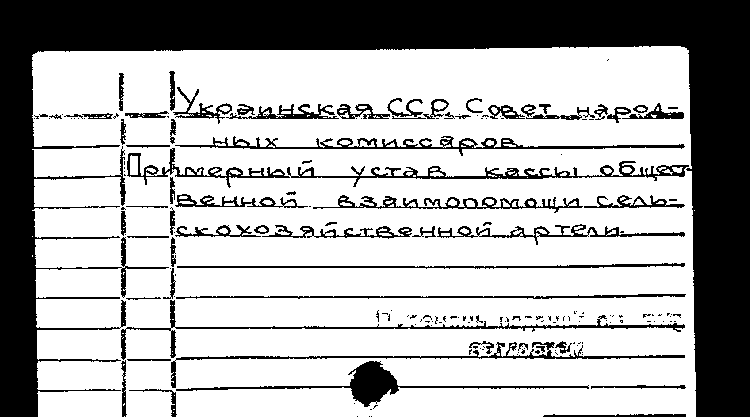 Украинская ССР Совет народ-
ных комиссаров.
Примерный устав кассы общест-
венной взаимопомощи сель-
скохозяйственной артели.